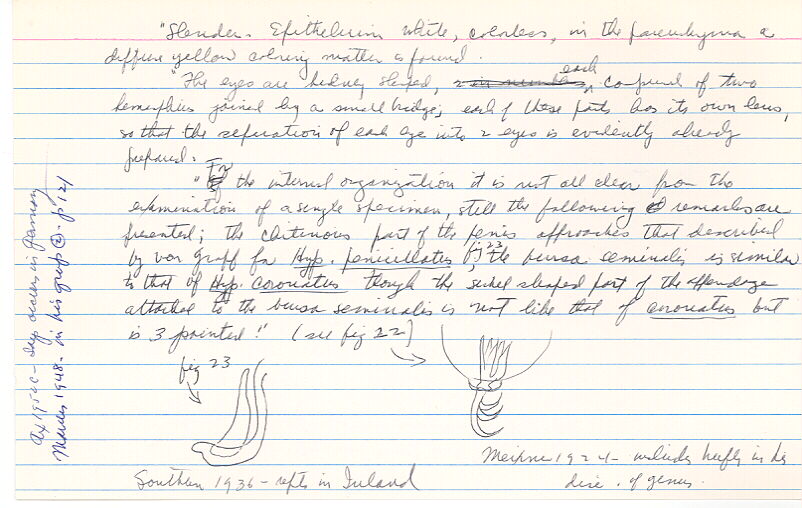 "Slender. Epithelium white, colorless, in the parenchyma a
diffuse yellow coloring matter is found.
"The eyes are kidney shaped, 2 in number, each composed of two
hemispheres joined by a small bridge; each of these parts has its own lens,
so that the separation of each eye into 2 eyes is evidently already
prepared.
"In the internal organization it is not all clear from the
examination of a single specimen, still the following remarks are
presented; the chitinous part of the penis approaches that described
by von Graff for Hyp. penicillatus fig 23, the bursa seminalis is similar
to that of Hyp. coronatus though the sickel shaped part of the appendage
attached to the bursa seminalis is not like that of coronatus but
is 3 pointed!" (see fig 22)
fig 23
Southern 1936 - repts in Ireland
Meixner 1924 - includes briefly in his
disc. of genus.
Ax 1952c - Says occurs in Germany
Marcus 1948 - in his group @. p. 121